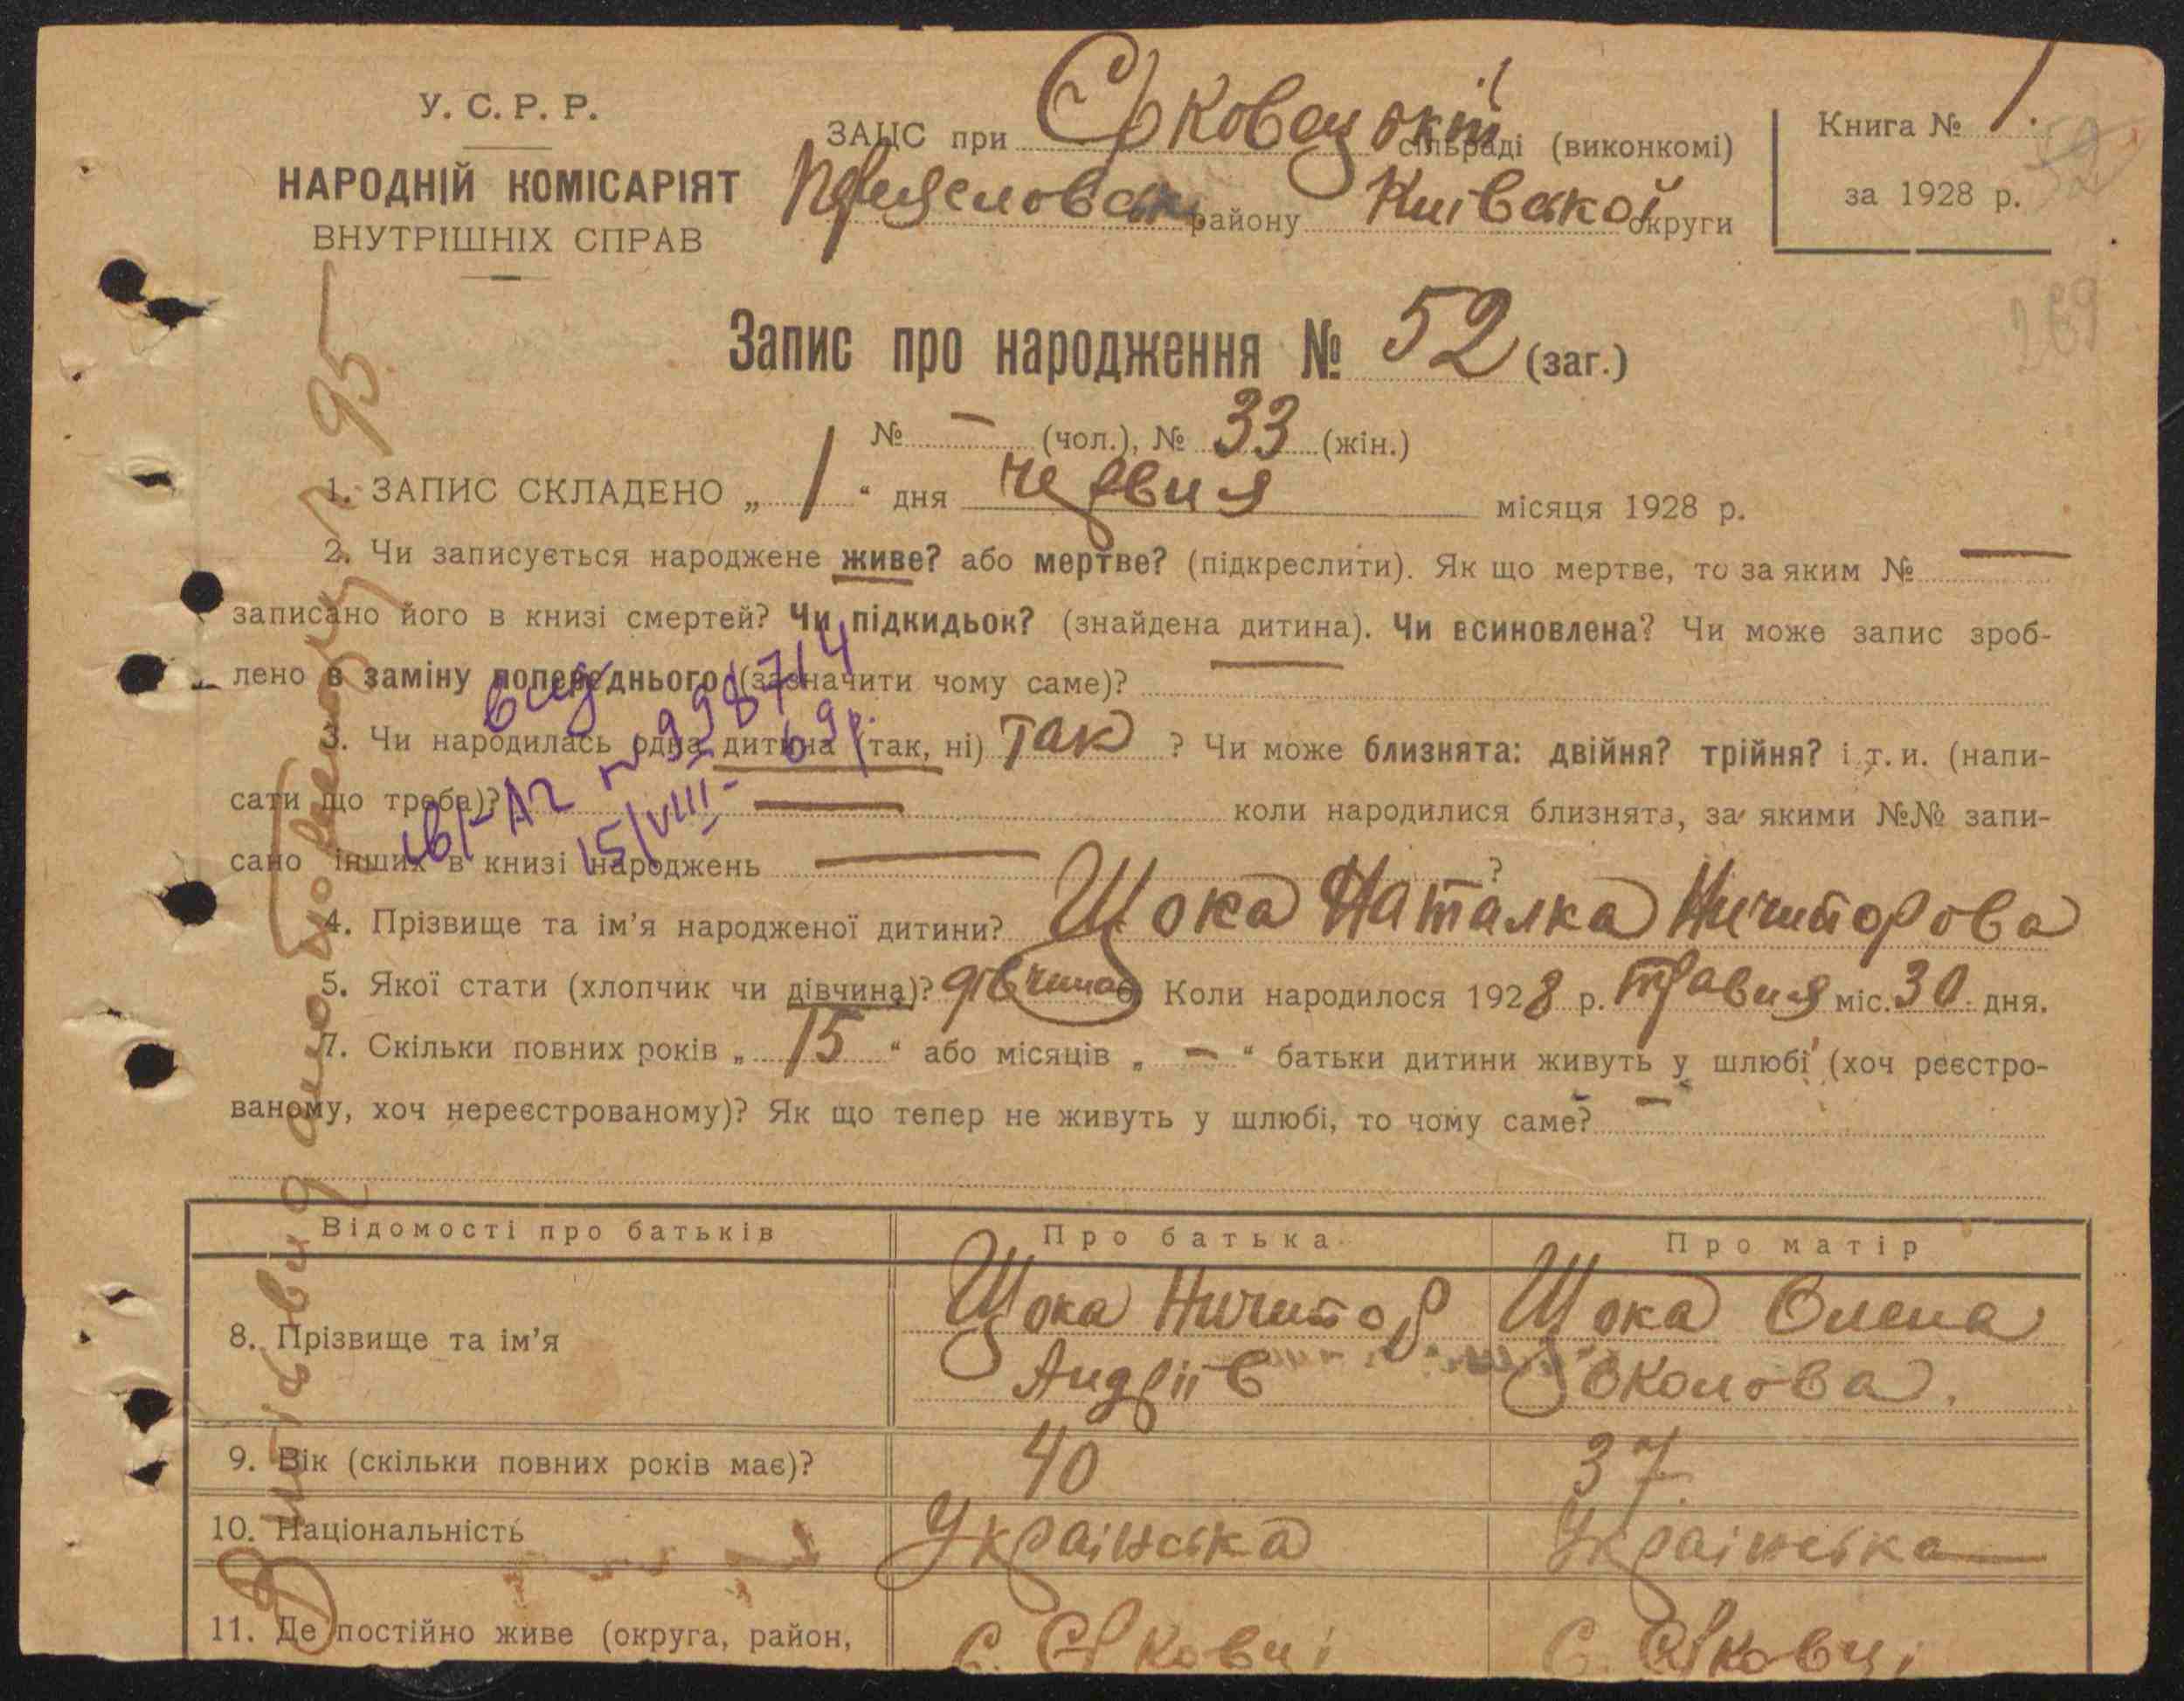 У. С. Р. Р.
НАРОДНІЙ КОМІСАРІЯТ
ВНУТРІШНІХ СПРАВ
ЗАЦС при сільраді (виконкомі)
району Київської округи
Книга № 1.
за 1928 р.
52
Запис про народження № 52 (заг.)
№ — (чол.), № 33 (жін.)
1. ЗАПИС СКЛАДЕНО „ 1 “ дня червня місяця 1928 р.
2. Чи записується народжене живе? або мертве? (підкреслити). Як що мертве, то за яким № —
записано його в книзі смертей? Чи підкидьок? (знайдена дитина). Чи всиновлена? Чи може запис зроб-
лено в заміну попереднього (зазначити чому саме)? —
3. Чи народилась одна дитина (так, ні) так ? Чи може близнята: двійня? трійня? і т. и. (напи-
сати що треба)? — коли народилися близнята, за якими №№ запи-
сано інших в книзі народжень — ?
4. Прізвище та ім’я народженої дитини? Щока Наталка Ничипорова
5. Якої стати (хлопчик чи дівчина)? дівчина 6. Коли народилося 1928 р. травня міс. 30 дня.
7. Скільки повних років „ 15 “ або місяців „ — “ батьки дитини живуть у шлюбі (хоч реєстро-
ваному, хоч нереєстрованому)? Як що тепер не живуть у шлюбі, то чому саме? —
Відомості про батьків Про батька Про матір
8. Прізвище та ім’я Щока Ничипор Щока Олена
Андріїв
9. Вік (скільки повних років має)? 40 37
10. Національність Українська Українська
11. Де постійно живе (округа, район,